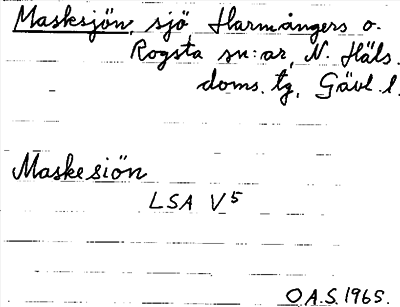 Masksjön, sjö Harmångers o.
Rogsta sn:ar, N. Häls.
doms. tg, Gävl. l.
Maskesiön
LSA V5
O.A.S. 1965.